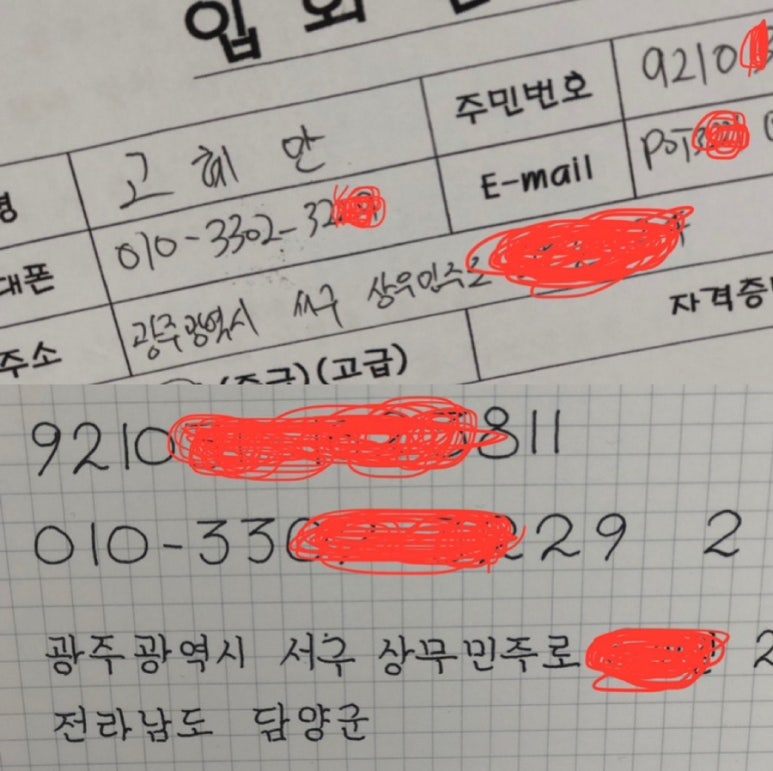 입 회
주민번호 9210
고 혜 안
E-mail POT
010-3302-32
대폰
주소 광주광역시 서구 상무민주로
자격증
(중급)(고급)
9210 811
010-330 229 2
광주광역시 서구 상무민주로 2
전라남도 담양군